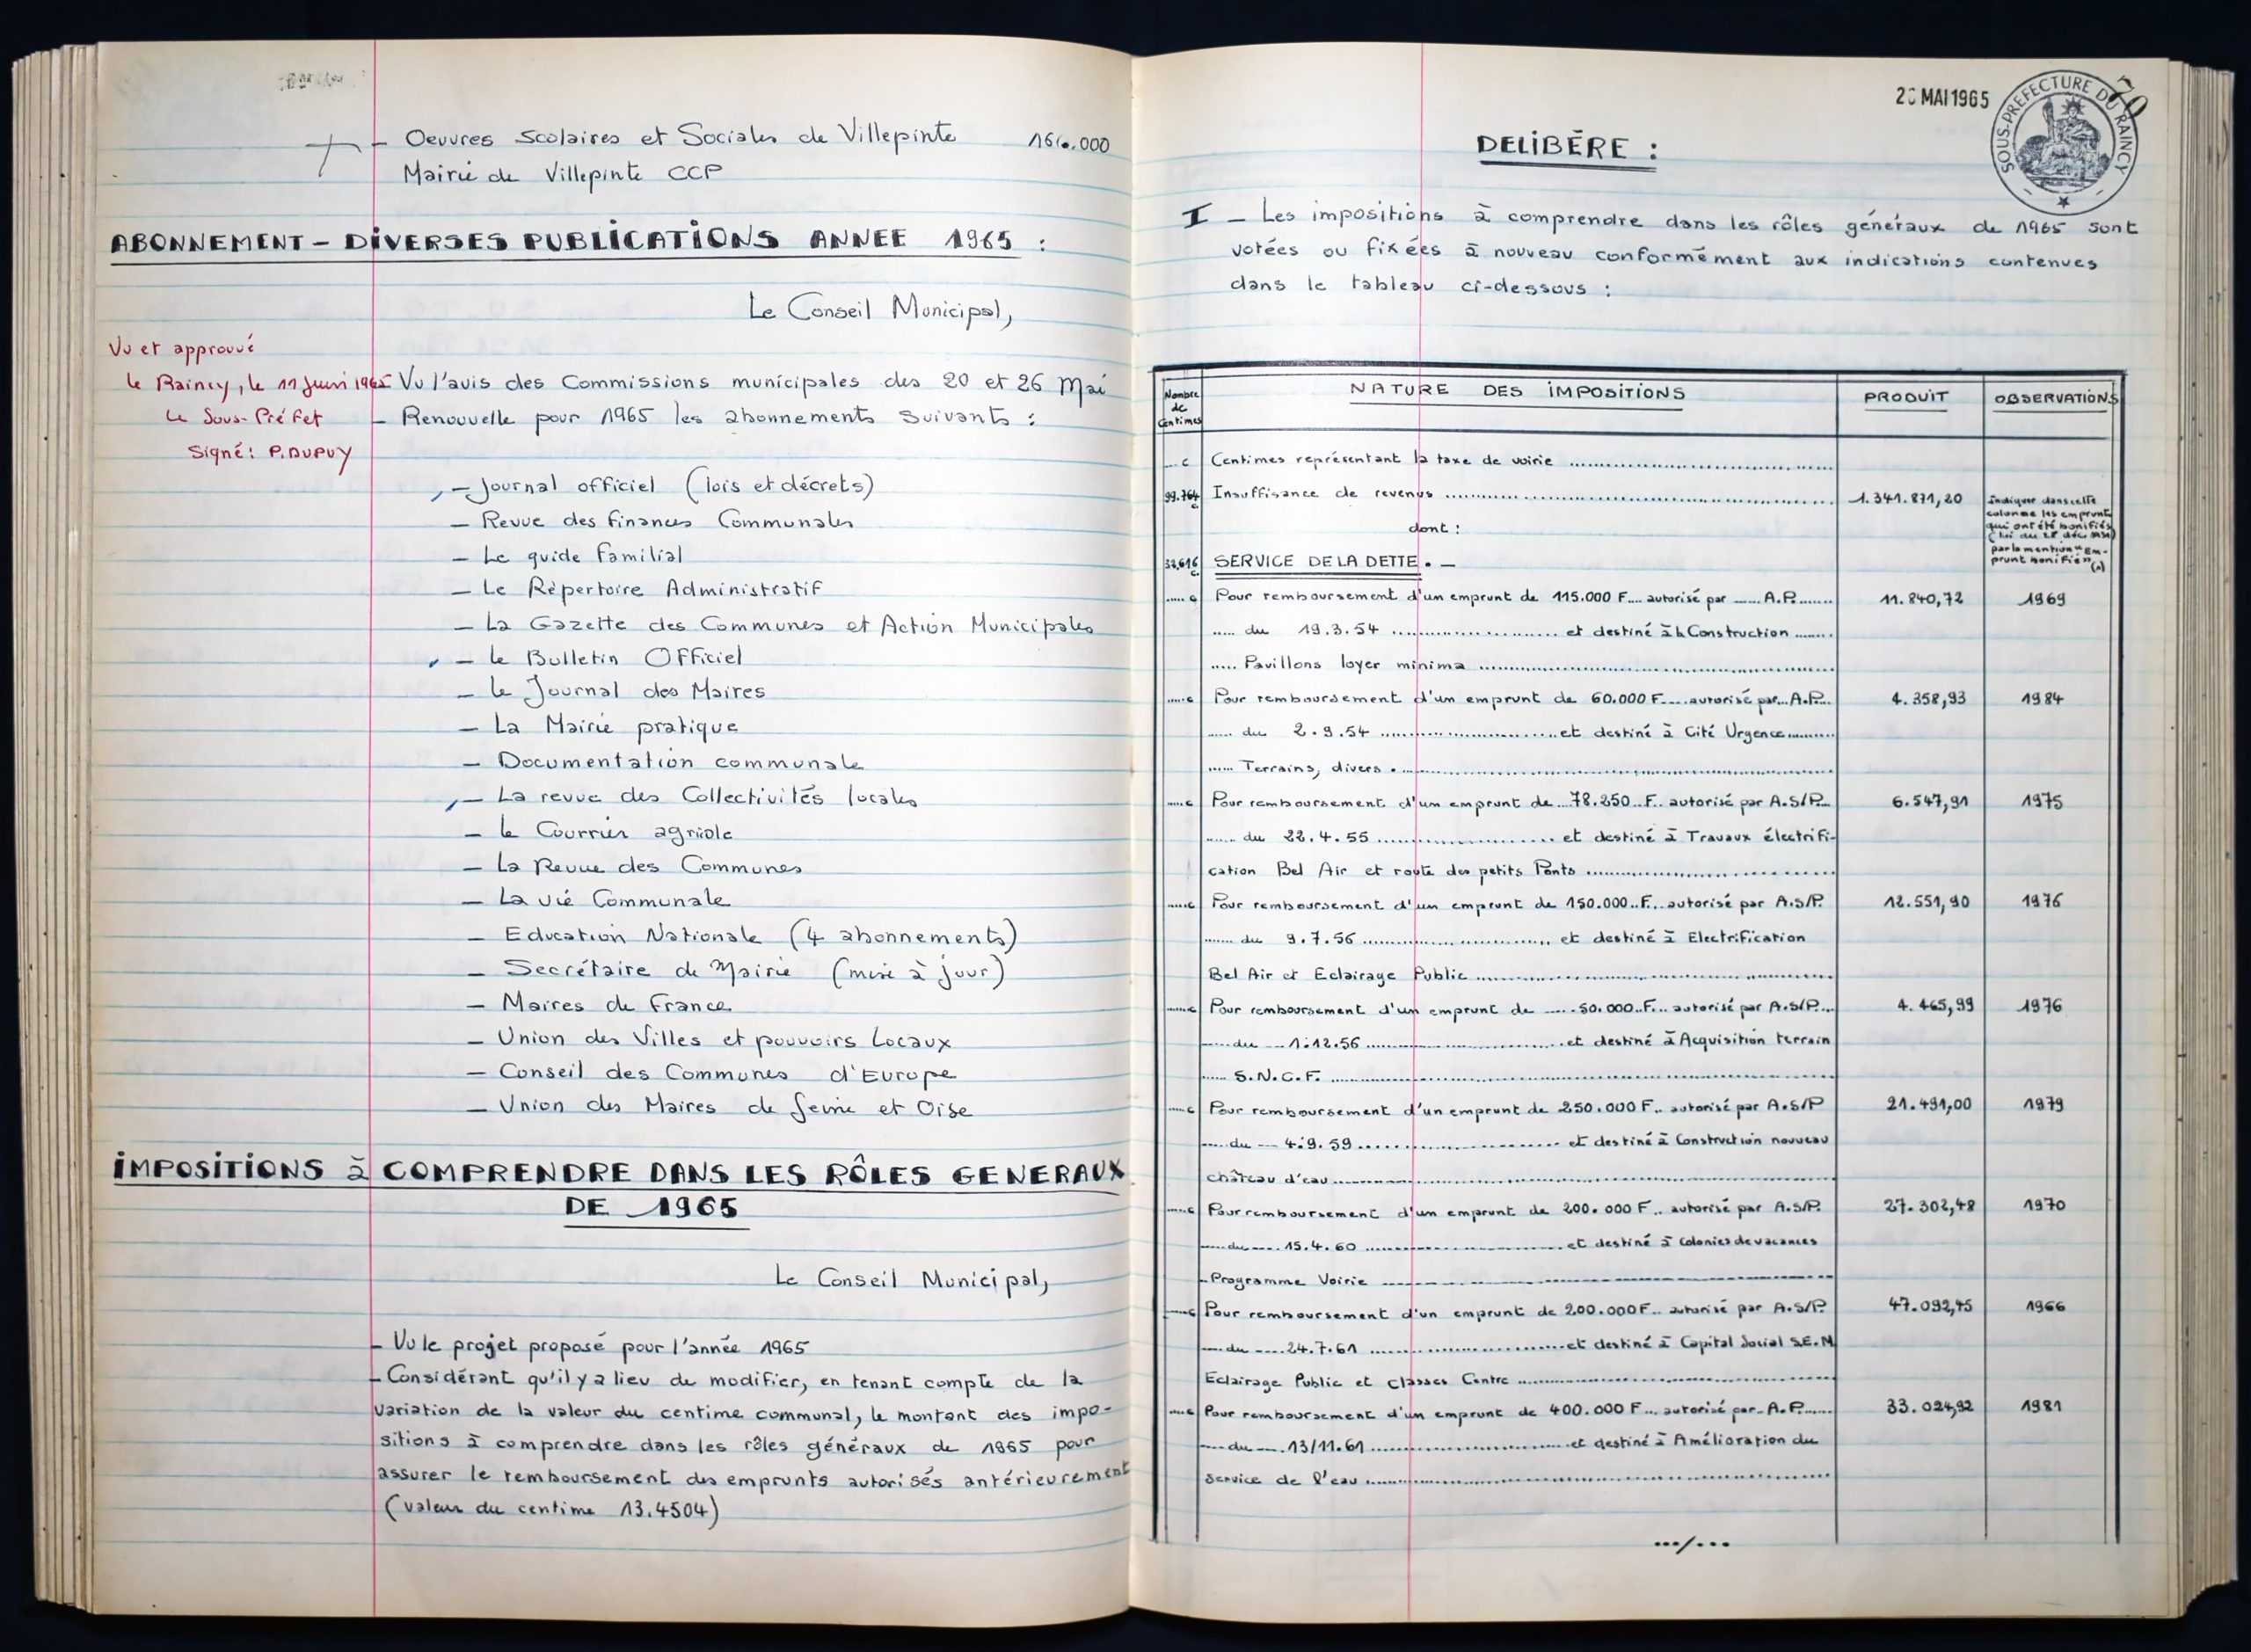 — Oeuvres Scolaires et Sociales de Villepinte
Mairie de Villepinte CCP
ABONNEMENT – DIVERSES PUBLICATIONS ANNEE 1965 :
Le Conseil Municipal,
Vu et approuvé
le Raincy, le 11 Juin 1965
Le Sous-Préfet
Signé : P. DUPUY
Vu l'avis des Commissions municipales des 20 et 26 Mai
— Renouvelle pour 1965 les abonnements suivants :
— Journal officiel (lois et décrets)
— Revue des finances Communales
— Le guide familial
— Le Répertoire Administratif
— La Gazette des Communes et Action Municipales
— le Bulletin Officiel
— le Journal des Maires
— La Mairie pratique
— Documentation communale
— La revue des Collectivités locales
— le Courrier agricole
— La Revue des Communes
— La vie Communale
— Education Nationale (4 abonnements)
— Secrétaire de Mairie (mise à jour)
— Maires de France
— Union des Villes et pouvoirs Locaux
— Conseil des Communes d'Europe
— Union des Maires de Seine et Oise
IMPOSITIONS à COMPRENDRE DANS LES RÔLES GENERAUX
DE 1965
Le Conseil Municipal,
— Vu le projet proposé pour l'année 1965
— Considérant qu'il y a lieu de modifier, en tenant compte de la
variation de la valeur du centime communal, le montant des impo-
sitions à comprendre dans les rôles généraux de 1965 pour
assurer le remboursement des emprunts autorisés antérieurement
(valeur du centime 13.4504)
MAI 1965
SOUS-PREFECTURE DU RAINCY
70
DELIBÈRE :
I — Les impositions à comprendre dans les rôles généraux de 1965 sont
votées ou fixées à nouveau conformément aux indications contenues
dans le tableau ci-dessous :
Nombre de Centimes NATURE DES IMPOSITIONS PRODUIT OBSERVATIONS
c Centimes représentant la taxe de voirie
99.764 c Insuffisance de revenus 1.341.871,20
Indiquer dans cette
colonne les emprunts
qui ont été bonifiés
par la mention "Em-
prunt bonifié" (a)
dont :
c. SERVICE DE LA DETTE. —
c Pour remboursement d'un emprunt de 115.000 F autorisé par A.P. 11.840,72 1969
du 19.3.54 et destiné à la Construction
Pavillons loyer minima
c Pour remboursement d'un emprunt de 60.000 F autorisé par A.P. 4.358,93 1984
du 2.9.54 et destiné à Cité Urgence
Terrains, divers.
c Pour remboursement d'un emprunt de 78.250 F. autorisé par A.S/P. 6.547,91 1975
du 22.4.55 et destiné à Travaux électrifi-
cation Bel Air et route des petits Ponts
c Pour remboursement d'un emprunt de 150.000 F. autorisé par A.S/P. 12.551,90 1976
du 9.7.56 et destiné à Electrification
Bel Air et Eclairage Public
c Pour remboursement d'un emprunt de 50.000 F. autorisé par A.S/P. 4.465,99 1976
du 1.12.56 et destiné à Acquisition terrain
S.N.C.F.
c Pour remboursement d'un emprunt de 250.000 F. autorisé par A.S/P 21.491,00 1979
du 4.9.59 et destiné à Construction nouveau
château d'eau
c Pour remboursement d'un emprunt de 200.000 F. autorisé par A.S/P. 27.302,48 1970
du 15.4.60 et destiné à Colonies de vacances
Programme Voirie
c Pour remboursement d'un emprunt de 200.000 F. autorisé par A.S/P. 47.092,45 1966
du 24.7.61 et destiné à Capital Social S.E.M
Eclairage Public et Classes Centre
c Pour remboursement d'un emprunt de 400.000 F autorisé par A.P. 33.024,92 1981
du 13/11.61 et destiné à Amélioration du
Service de l'eau
.../...